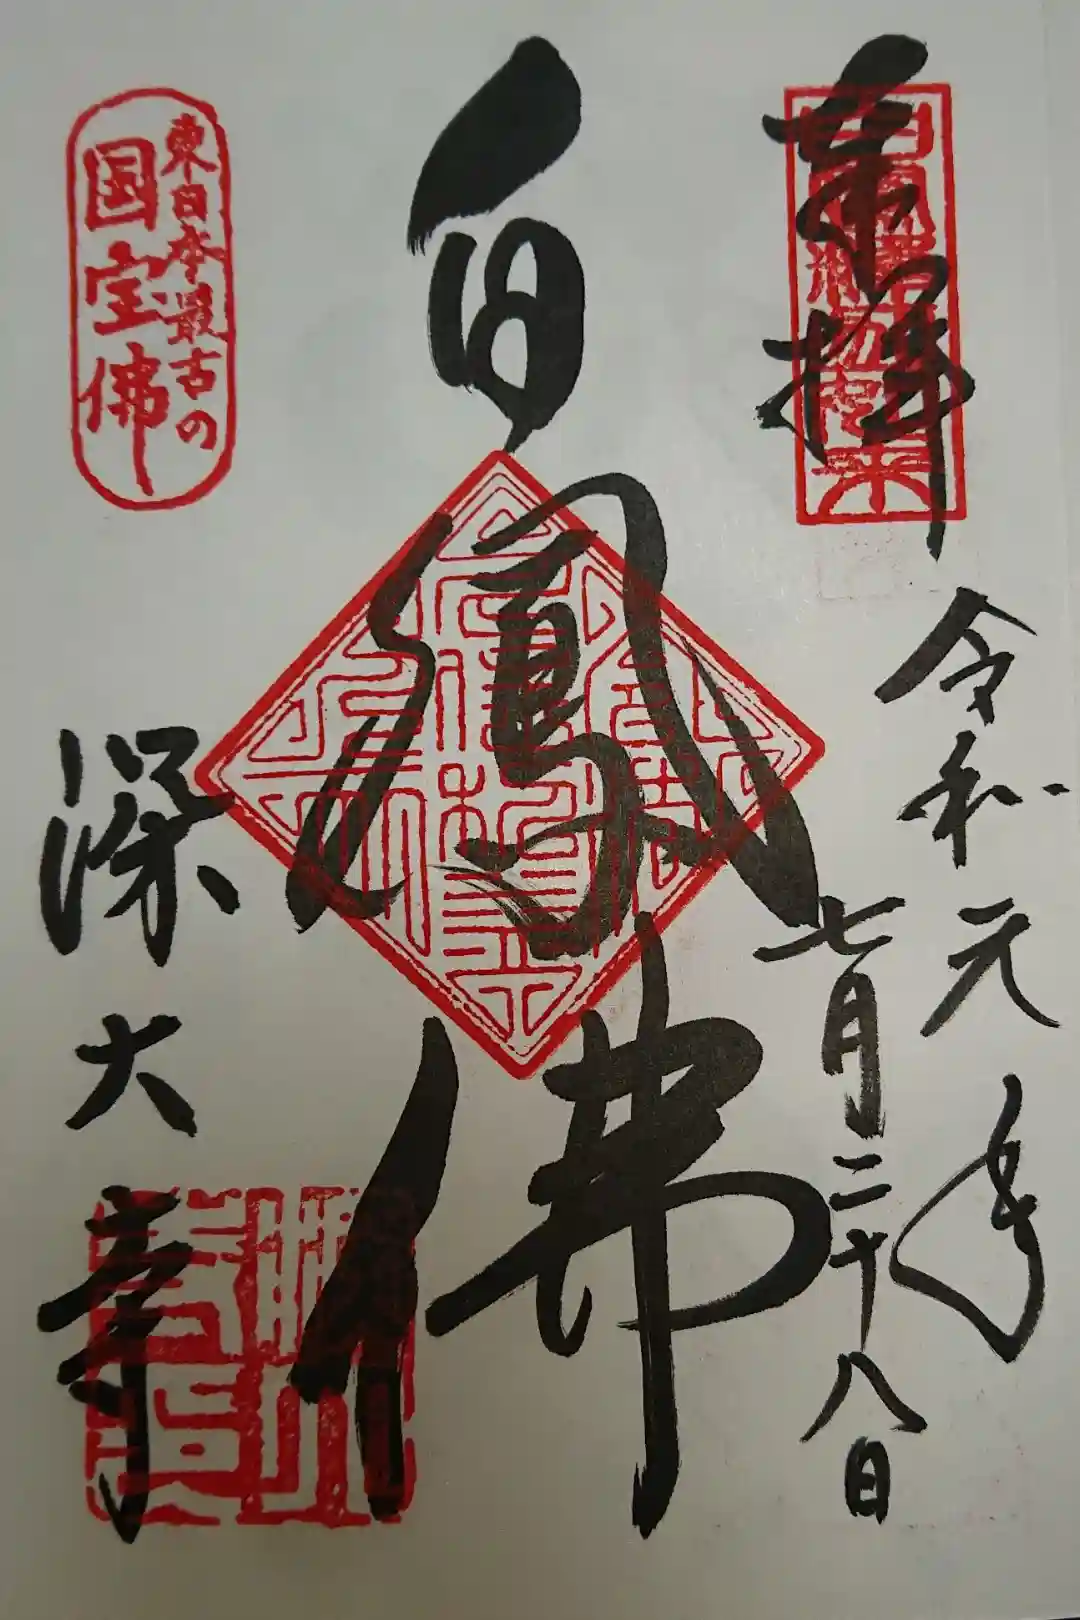 奉拝
令和元年
七月二十八日
白鳳佛
東日本最古の
国宝佛
深大寺